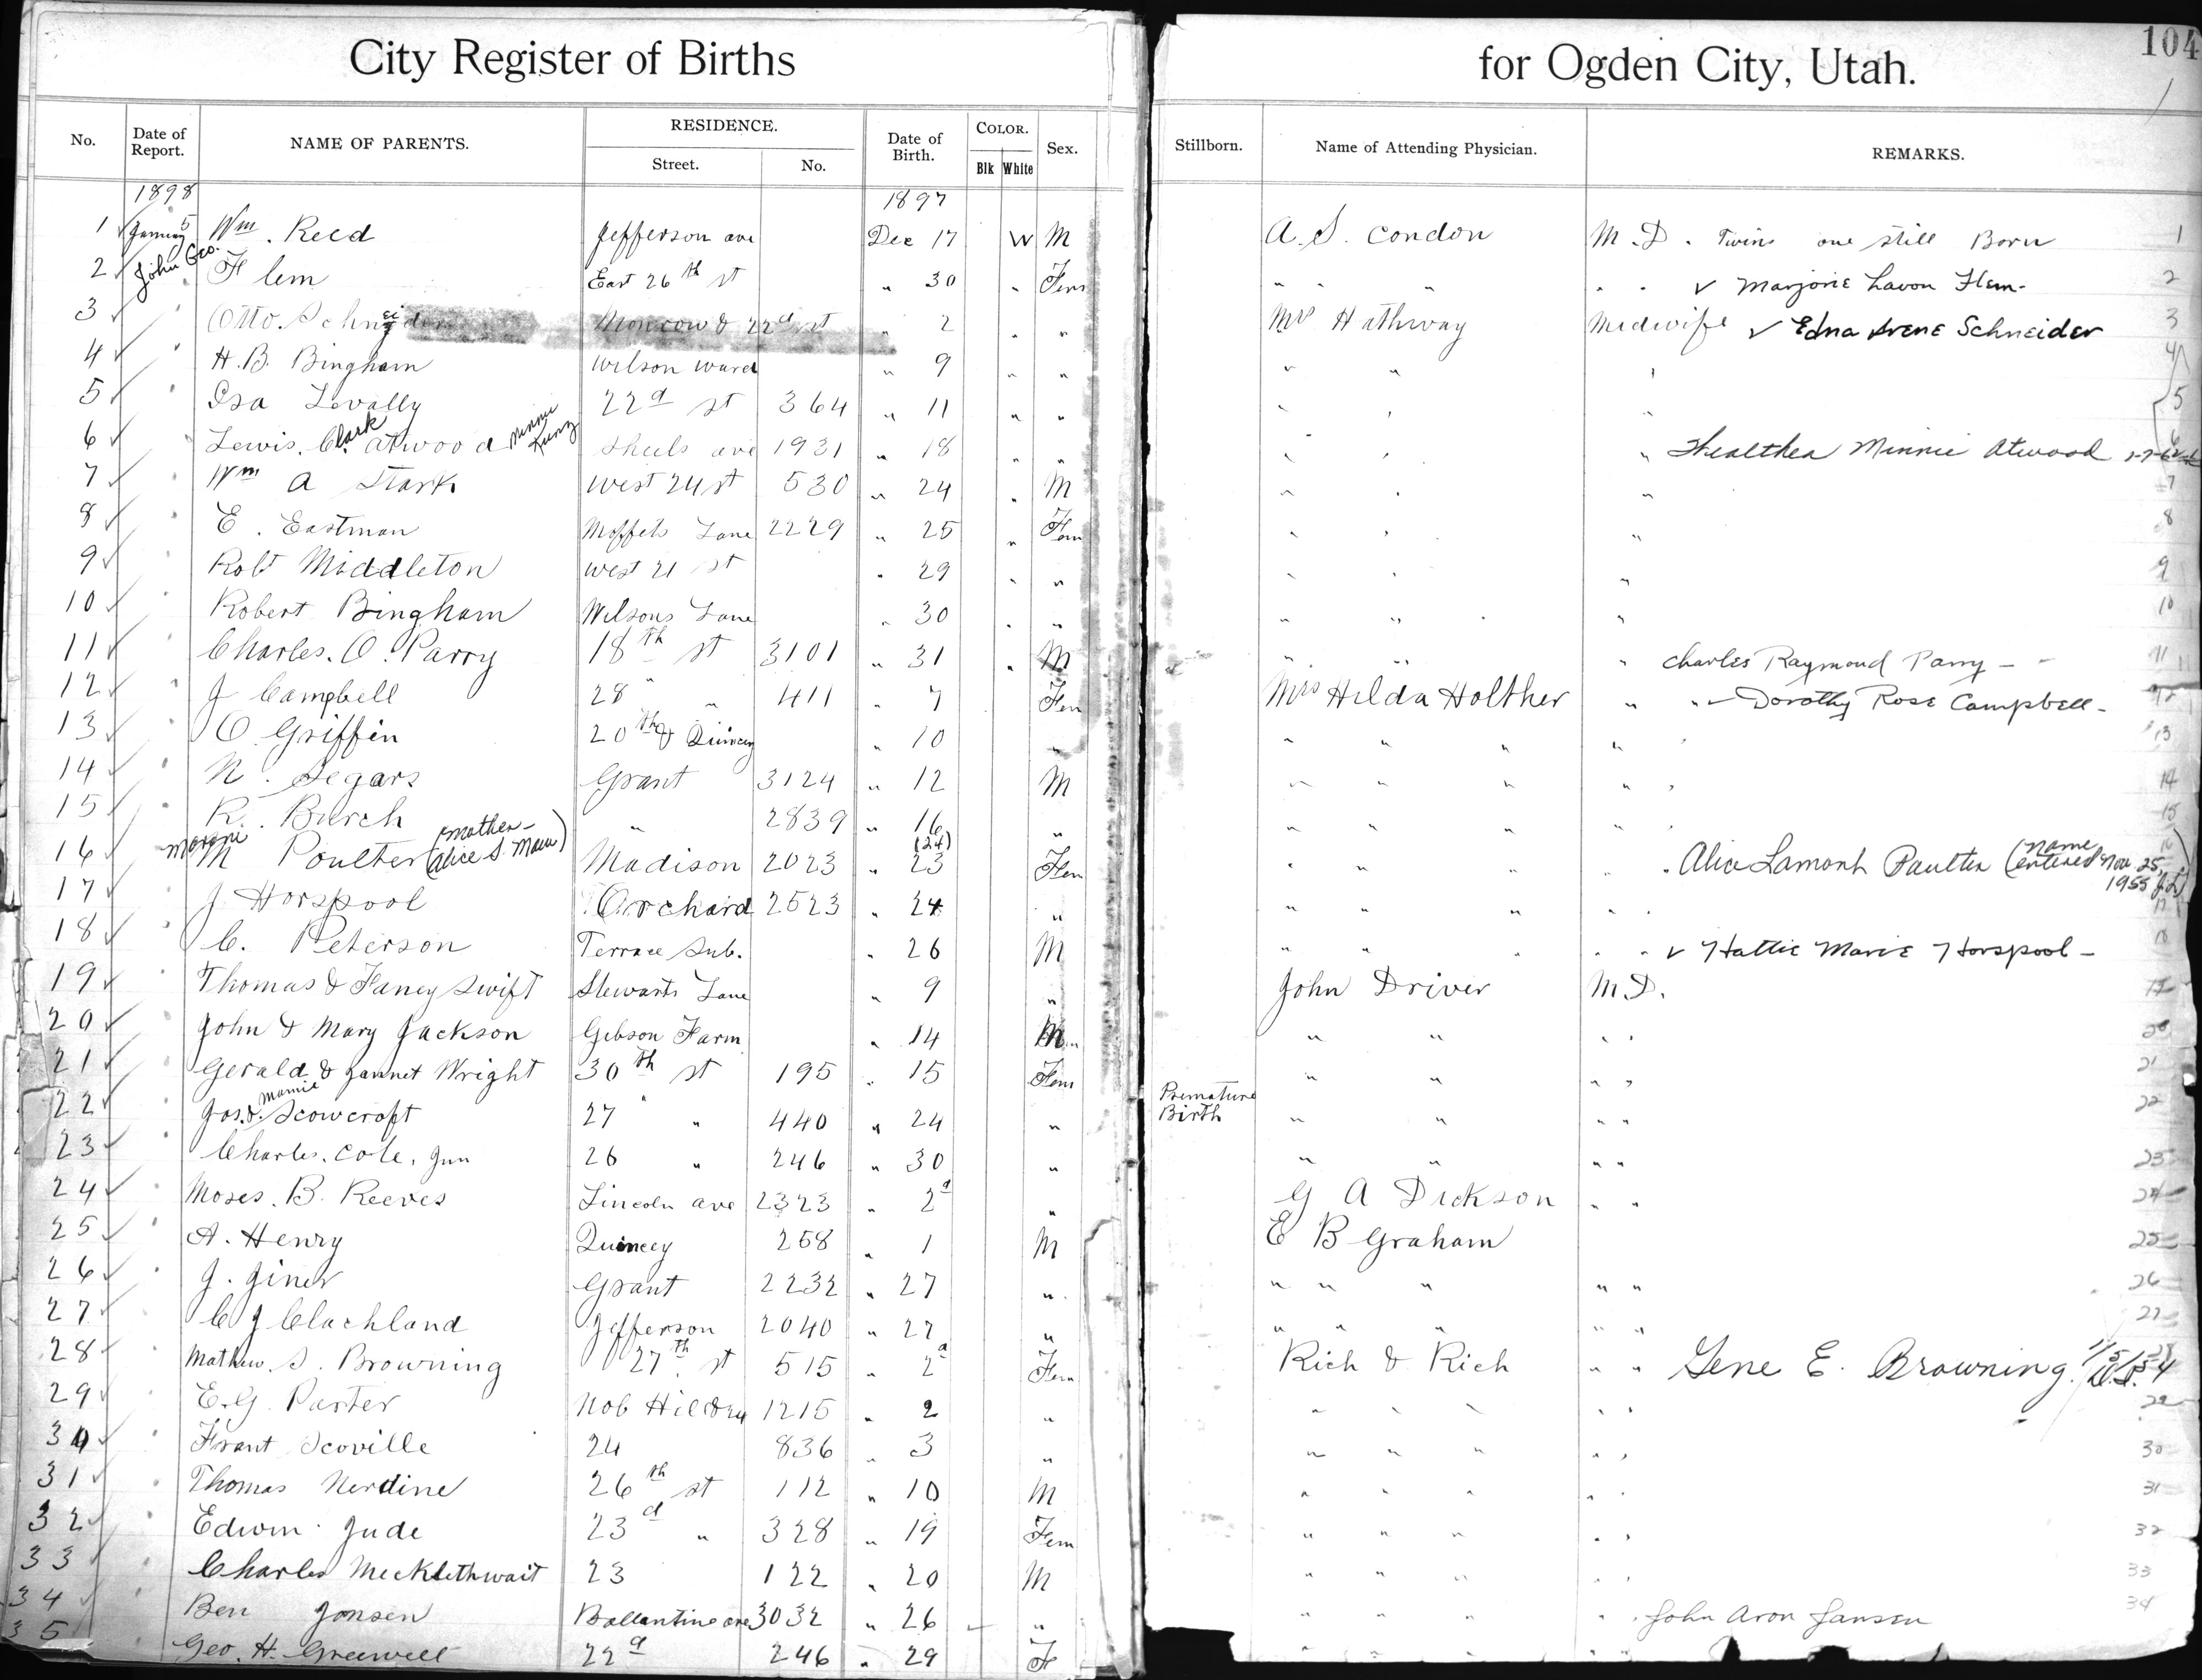 City Register of Births for Ogden City, Utah.
104
No. Date of Report. NAME OF PARENTS. RESIDENCE. Street. No. Date of Birth. COLOR. Blk White Sex. Stillborn. Name of Attending Physician. REMARKS.
1898 1897
1 January 5 Wm. Reed Jefferson ave Dec 17 W M A. S. Condon M.D. Twins one still Born 1
2 John Geo. Flem East 26th st " 30 " Fem " " " " " Marjorie Lavon Flem- 2
3 Otto Schneider 22d st " 2 " " Mrs Hathway Midwife Edna Irene Schneider 3
4 H. B. Bingham Wilson Ward " 9 " " " " " 4
5 Isa Levally 22d st 364 " 11 " " " " " 5
6 Lewis. Clark Atwood Minnie Kunz ave 1931 " 18 " " " " " Minnie Atwood
7 Wm A Stark West 24 st 530 " 24 " M " " " 7
8 E. Eastman Moffets Lane 2229 " 25 " Fem " " " 8
9 Robt Middleton West 21 st " 29 " " " " " 9
10 Robert Bingham Wilsons Lane " 30 " " " " " 10
11 Charles. O. Parry 18th st 3101 " 31 " M " " " Charles Raymond Parry - - 11
12 J Campbell 28 " 411 " 7 Fem Mrs Hilda Holther " " Dorothy Rose Campbell- 12
13 O. Griffin 20th & Quincy " 10 " " " " " " 13
14 N. Segars Grant 3124 " 12 M " " " " " 14
15 R. Burch " 2839 " 16 " " " " " 15
16 Moroni M Poulter (mother- Alice S. Maw) Madison 2023 " (24) 23 Fem " " " " Alice Lamont Poulter (name entered Nov 25, 1955
17 J Horspool Orchard 2523 " 24 " " " " " " 17
18 C. Peterson Terrace Sub. " 26 M " " " " " Hattie Marie Horspool- 18
19 Thomas & Faney Swift Stewarts Lane " 9 " John Driver M.D.
20 John & Mary Jackson Gibson Farm " 14 M " " " " 20
21 Gerald & Jannet Wright 30th st 195 " 15 Fem " " " " 21
22 Jos. & Mamie Scowcroft 27 " 440 " 24 " Premature Birth " " " " 22
23 Charles. Cole, Jun 26 " 246 " 30 " " " " " 23
24 Moses. B. Reeves Lincoln ave 2323 " 2d " G A Dickson " " 24
25 A. Henry Quincey 258 " 1 M E B Graham 25
26 J. Jiner Grant 2232 " 27 " " " " " " 26
27 C J Clachland Jefferson 2040 " 27 " " " " " " 27
28 Mathew. S. Browning 27th st 515 " 2d Fem Rich & Rich " " Gene E. Browning 28
29 E. G. Parter Nob Hill 1215 " 2 " " " " " " 29
30 Frant Scoville 24 836 " 3 " " " " " " 30
31 Thomas Nerdine 26th st 112 " 10 M " " " " " 31
32 Edwin Jude 23d " 328 " 19 Fem " " " " " 32
33 Charles Mecklethwait 23 122 " 20 M " " " " " 33
34 Ben Jonsen Ballantine ave 3032 " 26 " " " " " " John Aron Jansen 34
35 Geo. H. Greewell 22d 246 " 29 F " " " " "